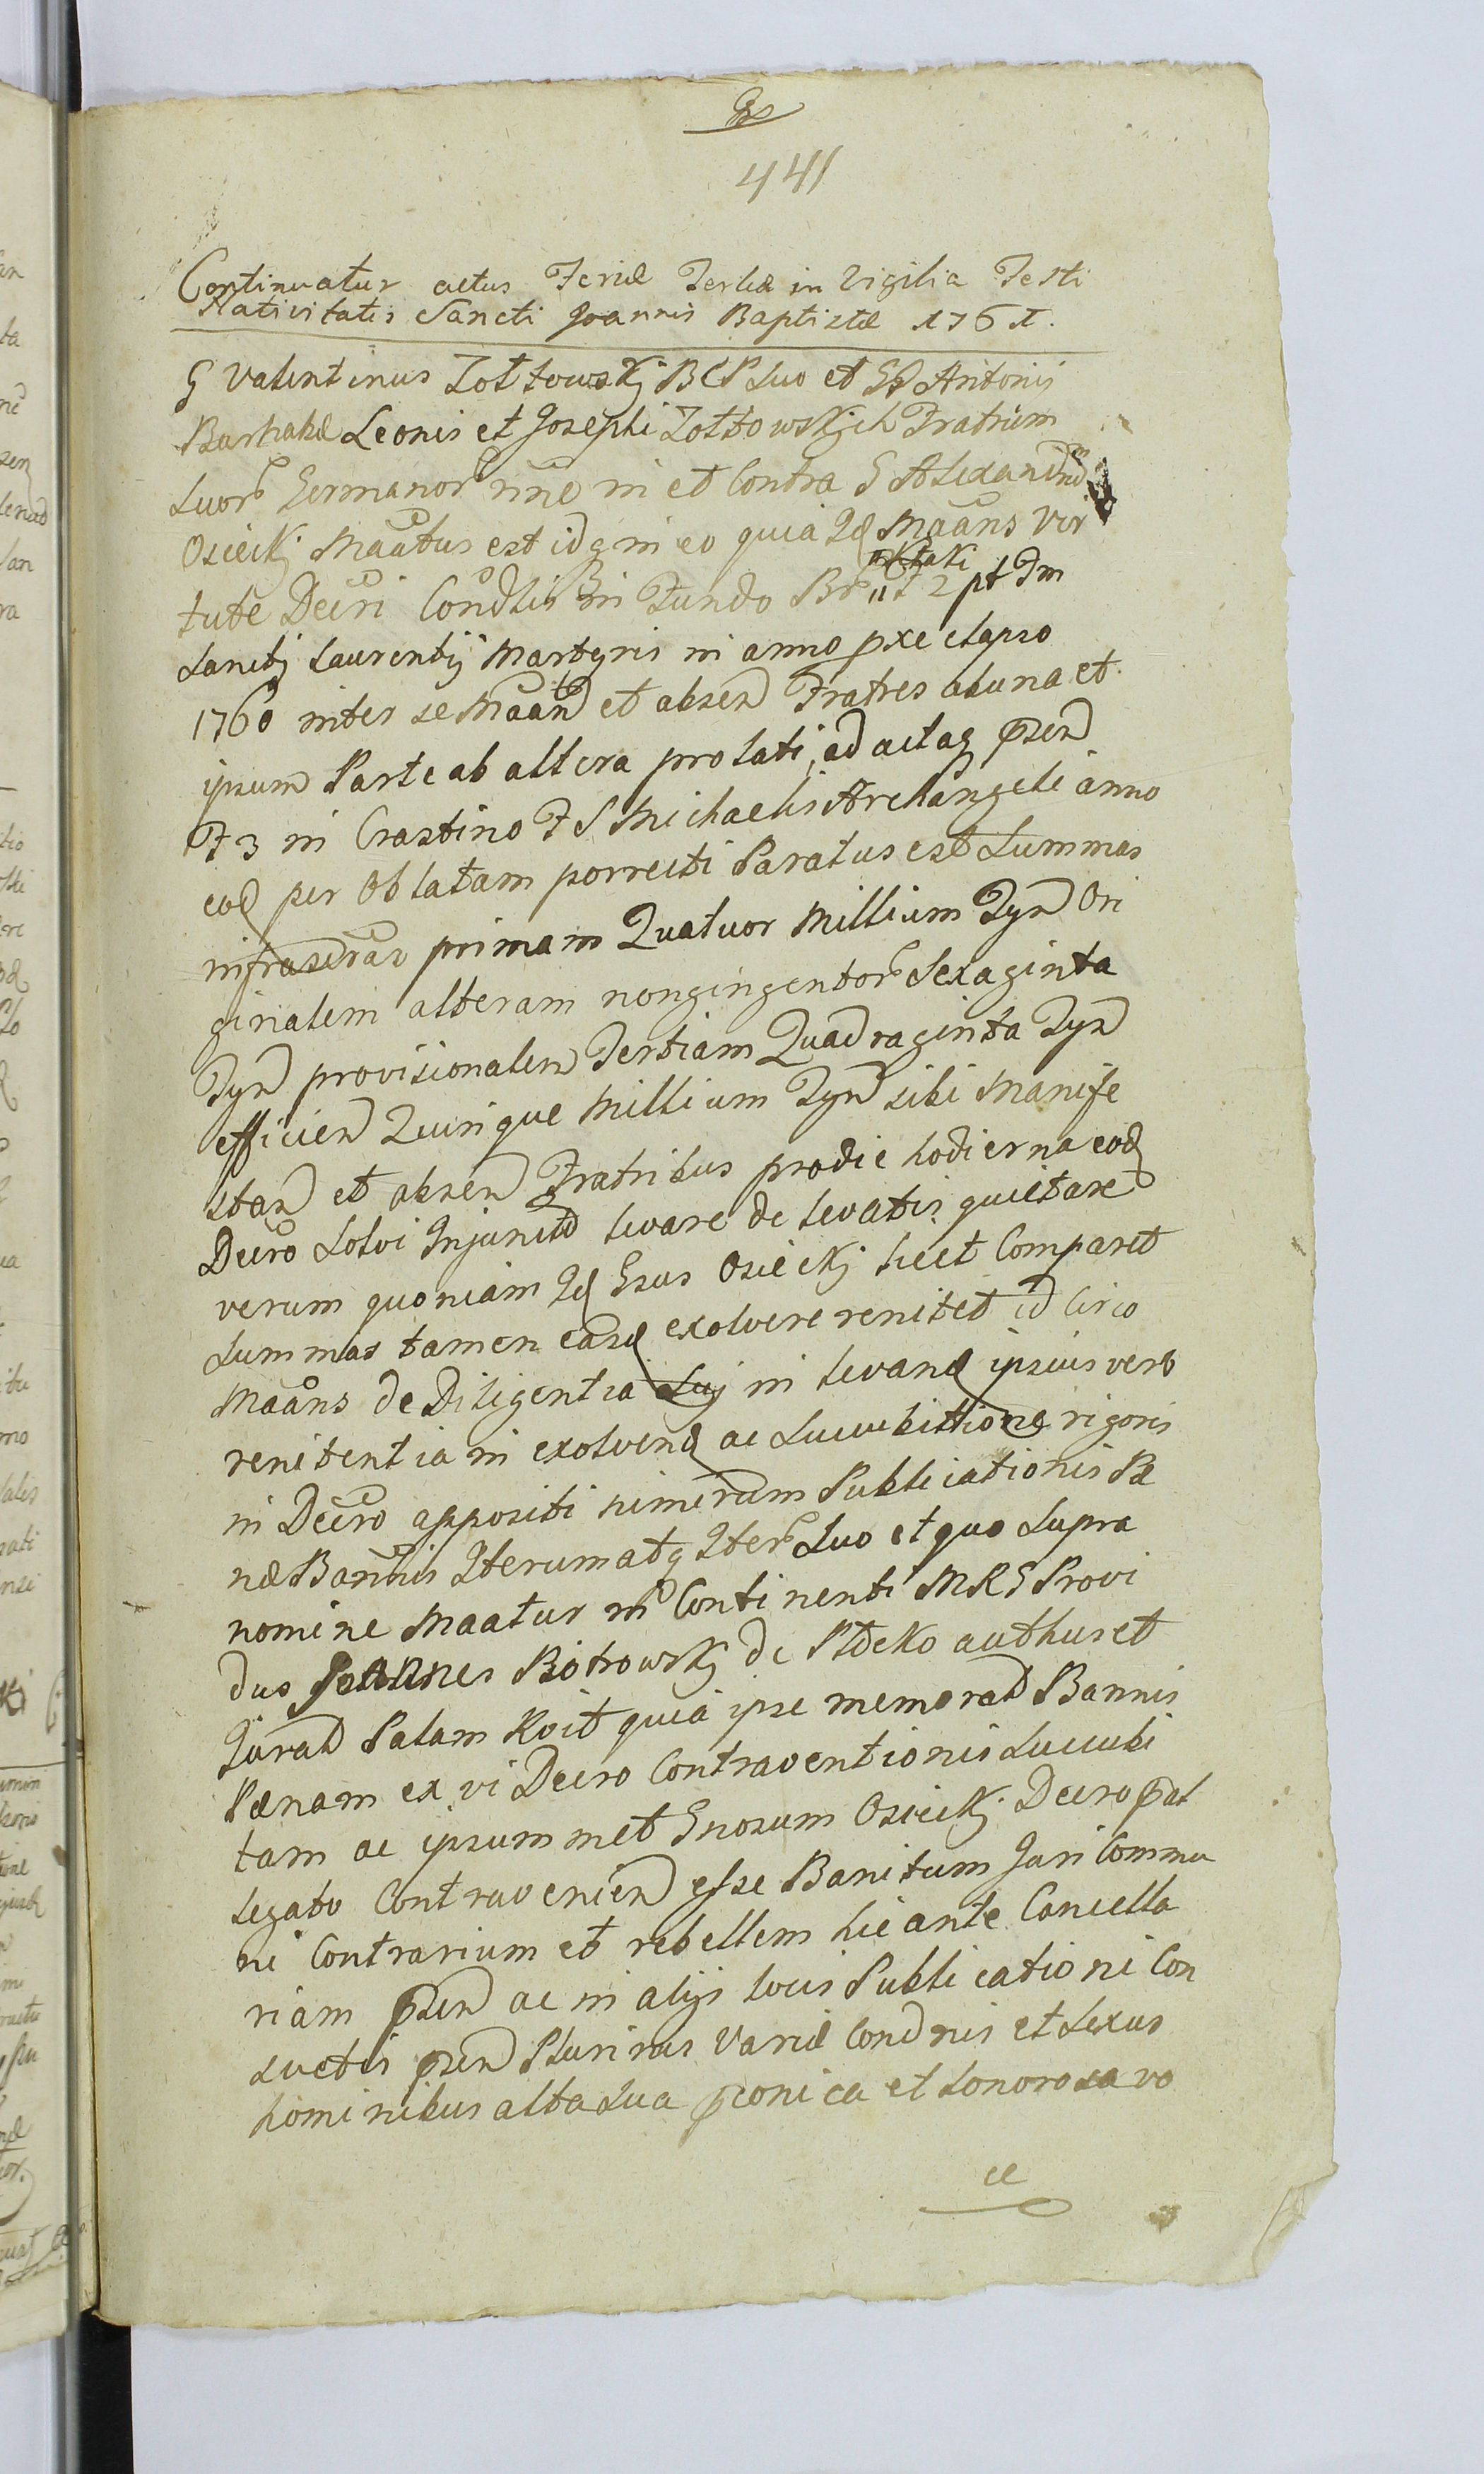 441
Continuatur actus Feriæ Tertiæ in Vigilia Festi
Nativitatis Sancti Joannis Baptistæ 1761.
G Valentinus Zołtowskj BCP Suo et GG Antonij
Leonis et Josephi Zołtowskich Fratrum
Suor Germanor nne in et Contra G Alexandrum
Osieckj Maatus est idq in eo quia Id Maans Vir
tute Decri Condlis in Fundo 2 pt Fm
Sancti Laurentij Martyris in anno pxe elapso
1760 inter se Maan et absen Fratres ab una et
ipsum Parte ab altera prolati, ad actaq psen
F 3 in Crastino F S Michaelis Archangeli anno
eod per Oblatam porrecti Paratus est Summas
infrascras primam Quatuor Millium Tyn Ori
ginalem alteram nongingentor Sexaginta
Tyn provisionalem Tertiam Quadraginta Tyn
efficien Quinque Millium Tyn sibi Manife
stan et absen Fratribus pro die hodierna eod
Decro Solvi Injunctas levare de levatis quietare
verum quoniam Id Gsus Osieckj licet Comparet
Summas tamen easd exolvere renitet id circo
Maans de Diligentia Sui in levand ipsius vero
renitentia in exolvend ac Succubittione rigoris
in Decro appositi nimirum Publicationis Pæ
næ Bannis Iterum atq Iter Suo et quo Supra
nomine Maatur in Continenti MRG Provi
dus Joannes Piotrowskj de Płocko authus et
Jurat Palam Roit quia ipse memorat Bannis
Pænam ex vi Decro Contraventionis Succubi
tam ac ipsummet Gnosum Osieckj Decro pal
legato Contravenien esse Banitum Juri Commu
ni Contrarium et rebellem hic ante Cancella
riam psen ac in alijs locis Publicationi Con
suetis psen Plurimis Variæ Condnis et Sexus
hominibus alta Sua pconica et Sonorosa vo
ce